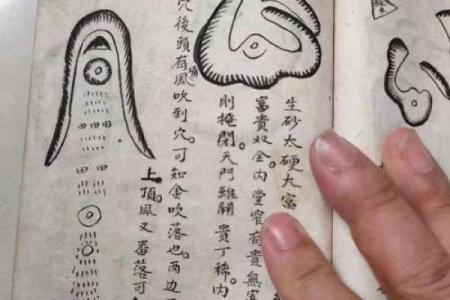 生砂太硬大富
富貴双全内堂窄有貴無
則掩閉。天門雖開貴丁稀。内
穴後頭有風吹到穴。可知金吹落也。两边
上頂風又番落可